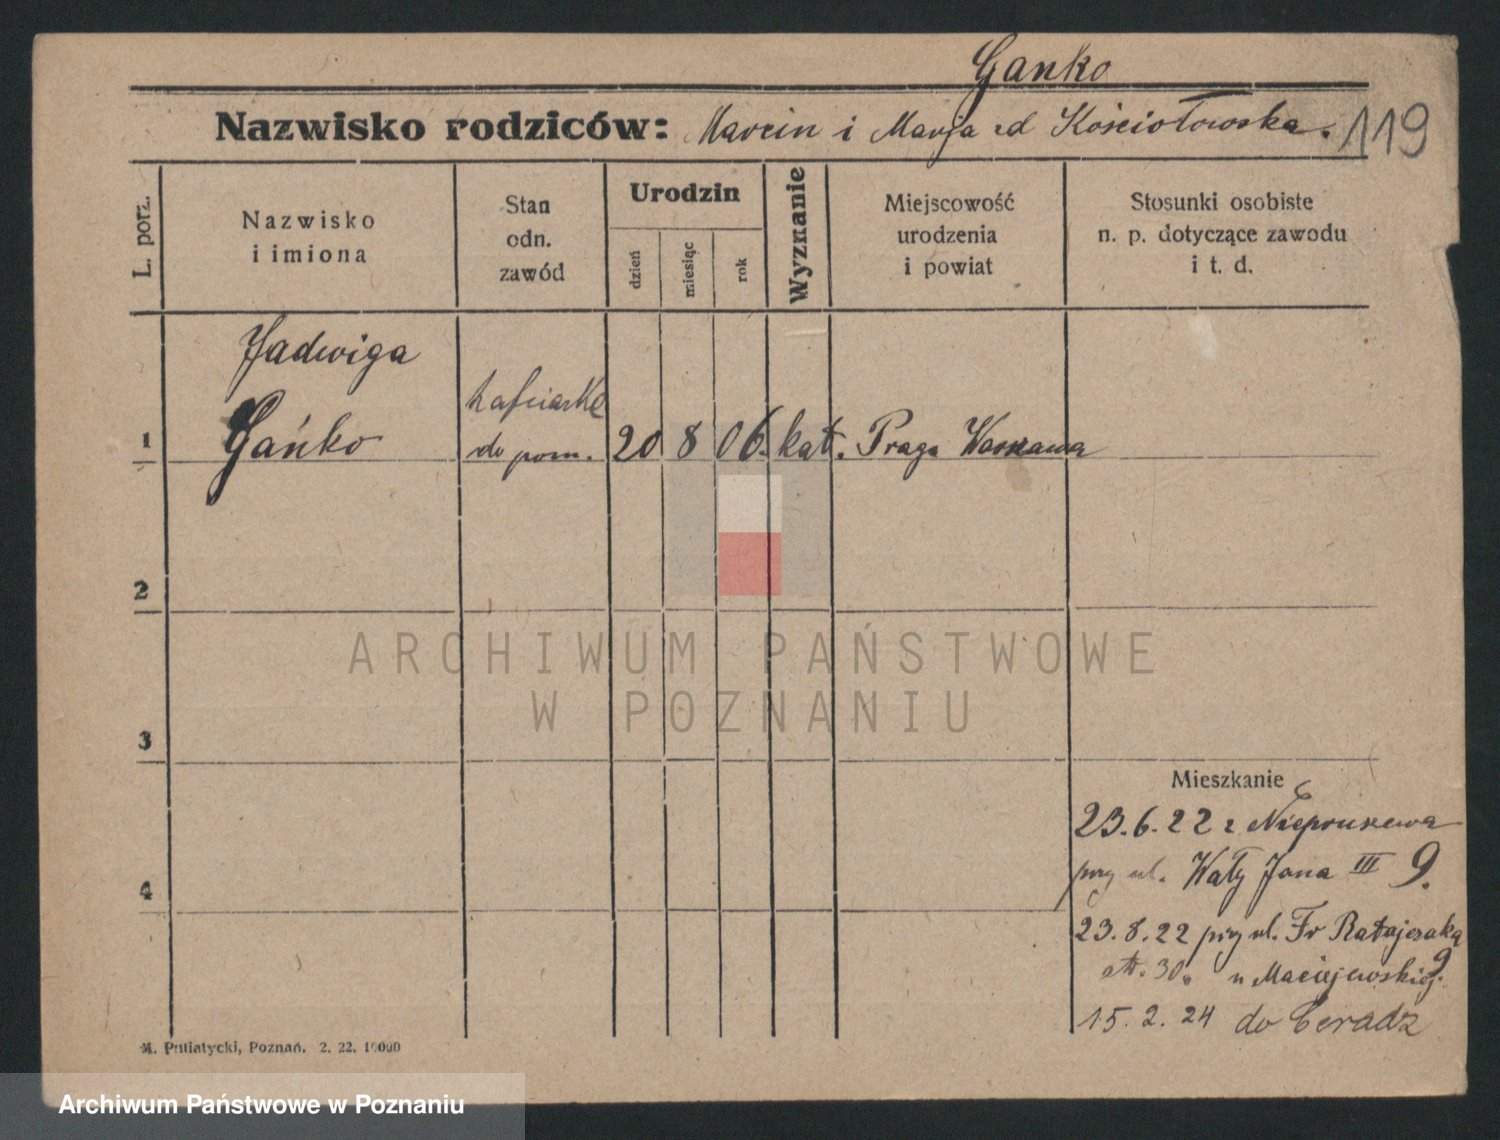 Gańko
Nazwisko rodziców: Marcin i Marja zd Kościołowska. 119
L. porz.
Nazwisko
i imiona
Stan
odn.
zawód
Urodzin
dzień
miesiąc
rok
Wyznanie
Miejscowość
urodzenia
i powiat
Stosunki osobiste
n. p. dotyczące zawodu
i t. d.
Jadwiga
hafciarka
1 Gańko do pom. 20 8 06. kat. Praga Warszawa
2
ARCHIWUM PAŃSTWOWE
W POZNANIU
3
Mieszkanie
23.6.22 z Niepruszewa
przy ul. Wały Jana III 9.
4
23.8.22 przy ul. Fr Ratajczaka 9
30 u Maciejewskiej.
15.2.24 do Ceradz
M. Putiatycki, Poznań. 2. 22. 10000
Archiwum Państwowe w Poznaniu